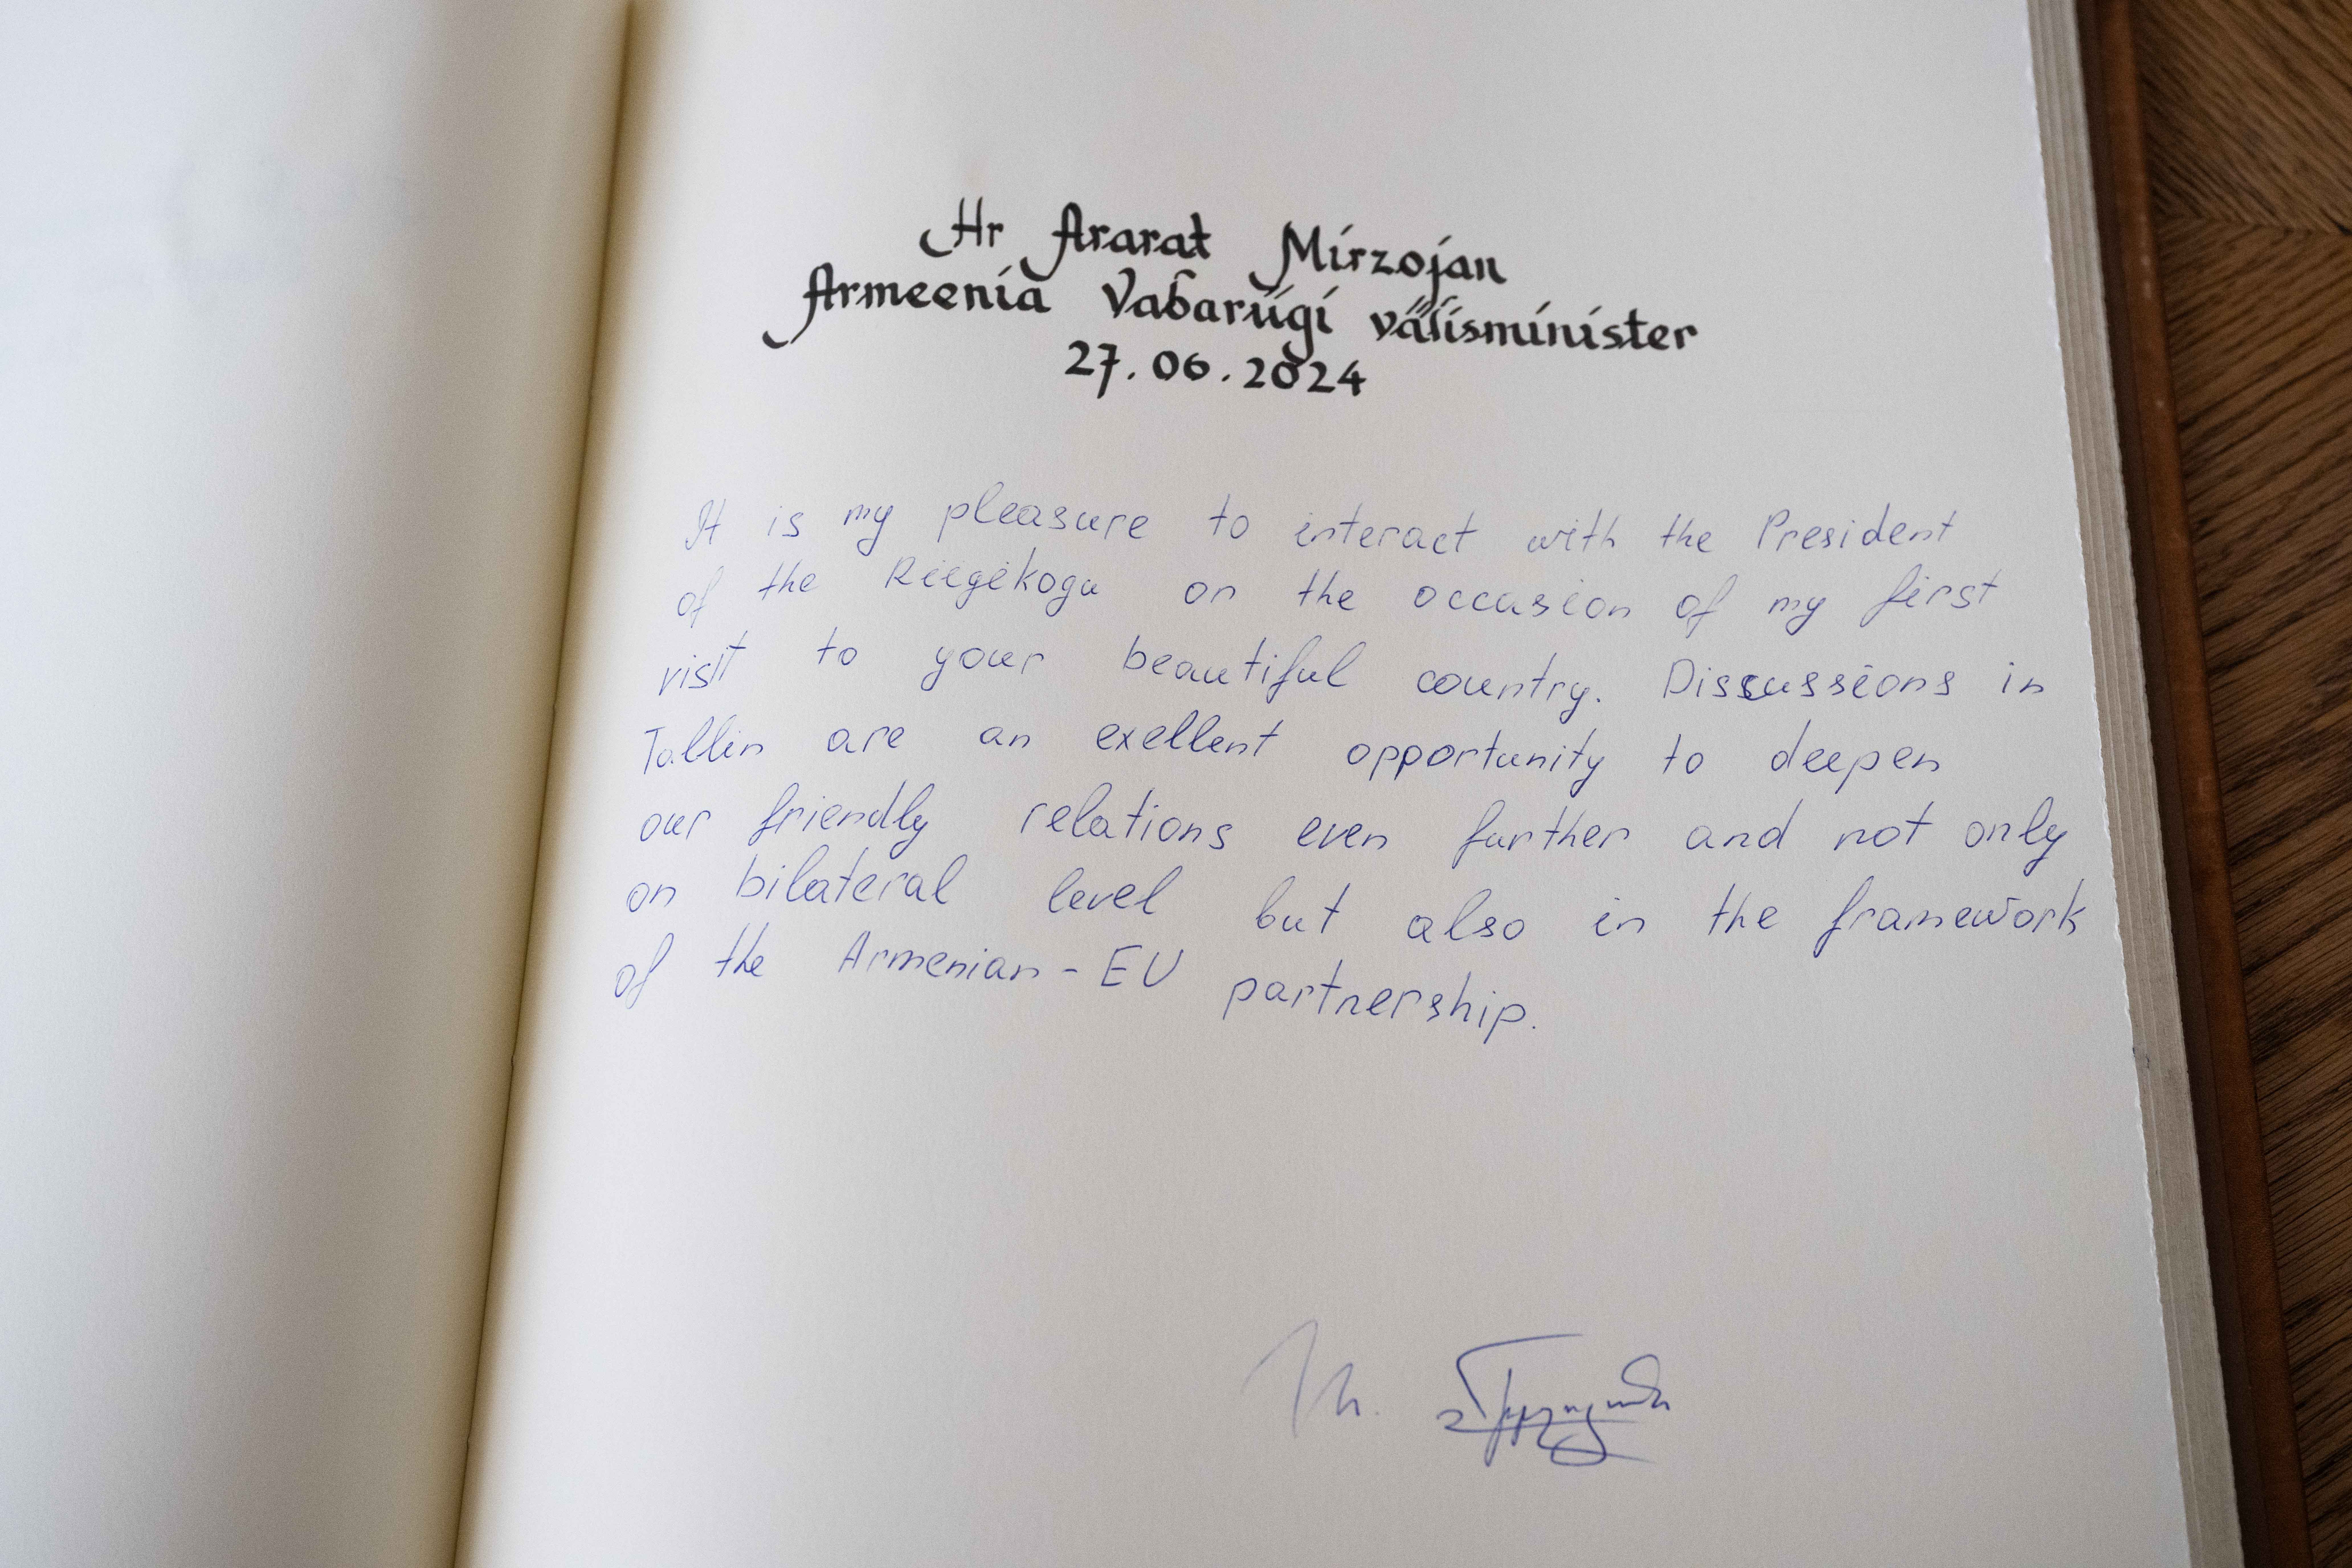 Hr Ararat Mirzojan
Armeenia Vabariigi välisminister
27.06.2024
It is my pleasure to interact with the President
of the Riigikogu on the occasion of my first
visit to your beautiful country. Discussions in
Tallin are an exellent opportunity to deepen
our friendly relations even further and not only
on bilateral level but also in the framework
of the Armenian-EU partnership.